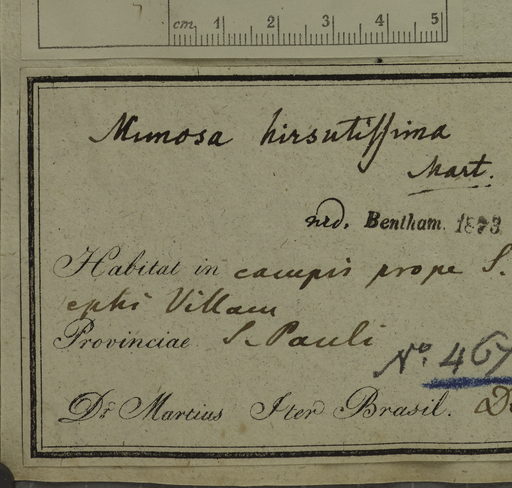 cm. 1 2 3 4 5
Mimosa hirsutissima
Mart.
Bentham. 1873
Habitat in campis prope S.
ephi Villam
Provinciae S. Pauli
No. 467
Dr. Martius Iter Brasil. D